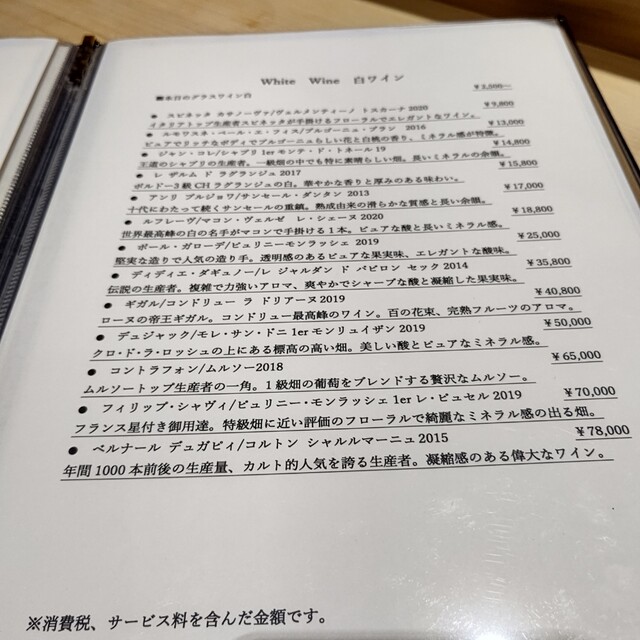 White Wine 白ワイン
■本日のグラスワイン白 ¥2,500～
● スピネッタ カサノーヴァ/ヴェルメンティーノ トスカーナ2020 ¥9,800
イタリアトップ生産者スピネッタが手掛けるフローラルでエレガントなワイン。
● ルモワスネ・ペール・エ・フィス/ブルゴーニュ・ブラン 2016 ¥13,000
ピュアでリッチなボディでブルゴーニュらしい花と白桃の香り、ミネラル感が特徴。
● ジャン・コレ/シャブリ 1erモンテ・ド・トネール19 ¥14,800
王道のシャブリの生産者。一級畑の中でも特に素晴らしい畑。長いミネラルの余韻。
● レ ザルム ド ラグランジュ2017 ¥15,800
ボルドー3級CHラグランジュの白。華やかな香りと厚みのある味わい。
● アンリ ブルジョワ/サンセール・ダンタン 2013 ¥17,000
十代にわたって続くサンセールの重鎮。熟成由来の滑らかな質感と長い余韻。
● ルフレーヴ/マコン・ヴェルゼ レ・シェーヌ 2020 ¥18,800
世界最高峰の白の名手がマコンで手掛ける1本。ピュアな酸と長いミネラル感。
● ポール・ガローデ/ピュリニーモンラッシェ 2019 ¥25,000
堅実な造りで人気の造り手。透明感のあるピュアな果実味、エレガントな酸味。
● ディディエ・ダギュノー/レ ジャルダン ド バビロン セック2014 ¥35,800
伝説の生産者。複雑で力強いアロマ、爽やかでシャープな酸と凝縮した果実味。
● ギガル/コンドリュー ラ ドリアーヌ2019 ¥40,800
ローヌの帝王ギガル。コンドリュー最高峰のワイン。百の花束、完熟フルーツのアロマ。
● デュジャック/モレ・サン・ドニ 1erモンリュイザン2019 ¥50,000
クロ・ド・ラ・ロッシュの上にある標高の高い畑。美しい酸とピュアなミネラル感。
● コントラフォン/ムルソー2018 ¥65,000
ムルソートップ生産者の一角。1級畑の葡萄をブレンドする贅沢なムルソー。
● フィリップ・シャヴィ/ピュリニー・モンラッシェ 1erレ・ピュセル2019 ¥70,000
フランス星付き御用達。特級畑に近い評価のフローラルで綺麗なミネラル感の出る畑。
● ベルナール デュガピィ/コルトン シャルルマーニュ2015 ¥78,000
年間1000本前後の生産量、カルト的人気を誇る生産者。凝縮感のある偉大なワイン。
※消費税、サービス料を含んだ金額です。